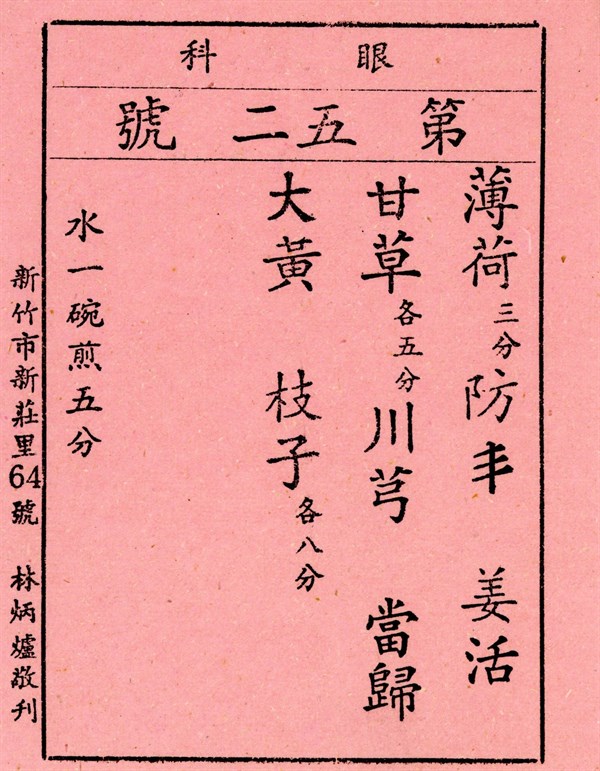 眼科
第五二號
薄荷三分 防丰 姜活
甘草各五分 川芎 當歸
大黃 枝子各八分
水一碗煎五分
新竹市新莊里64號 林炳爐敬刊